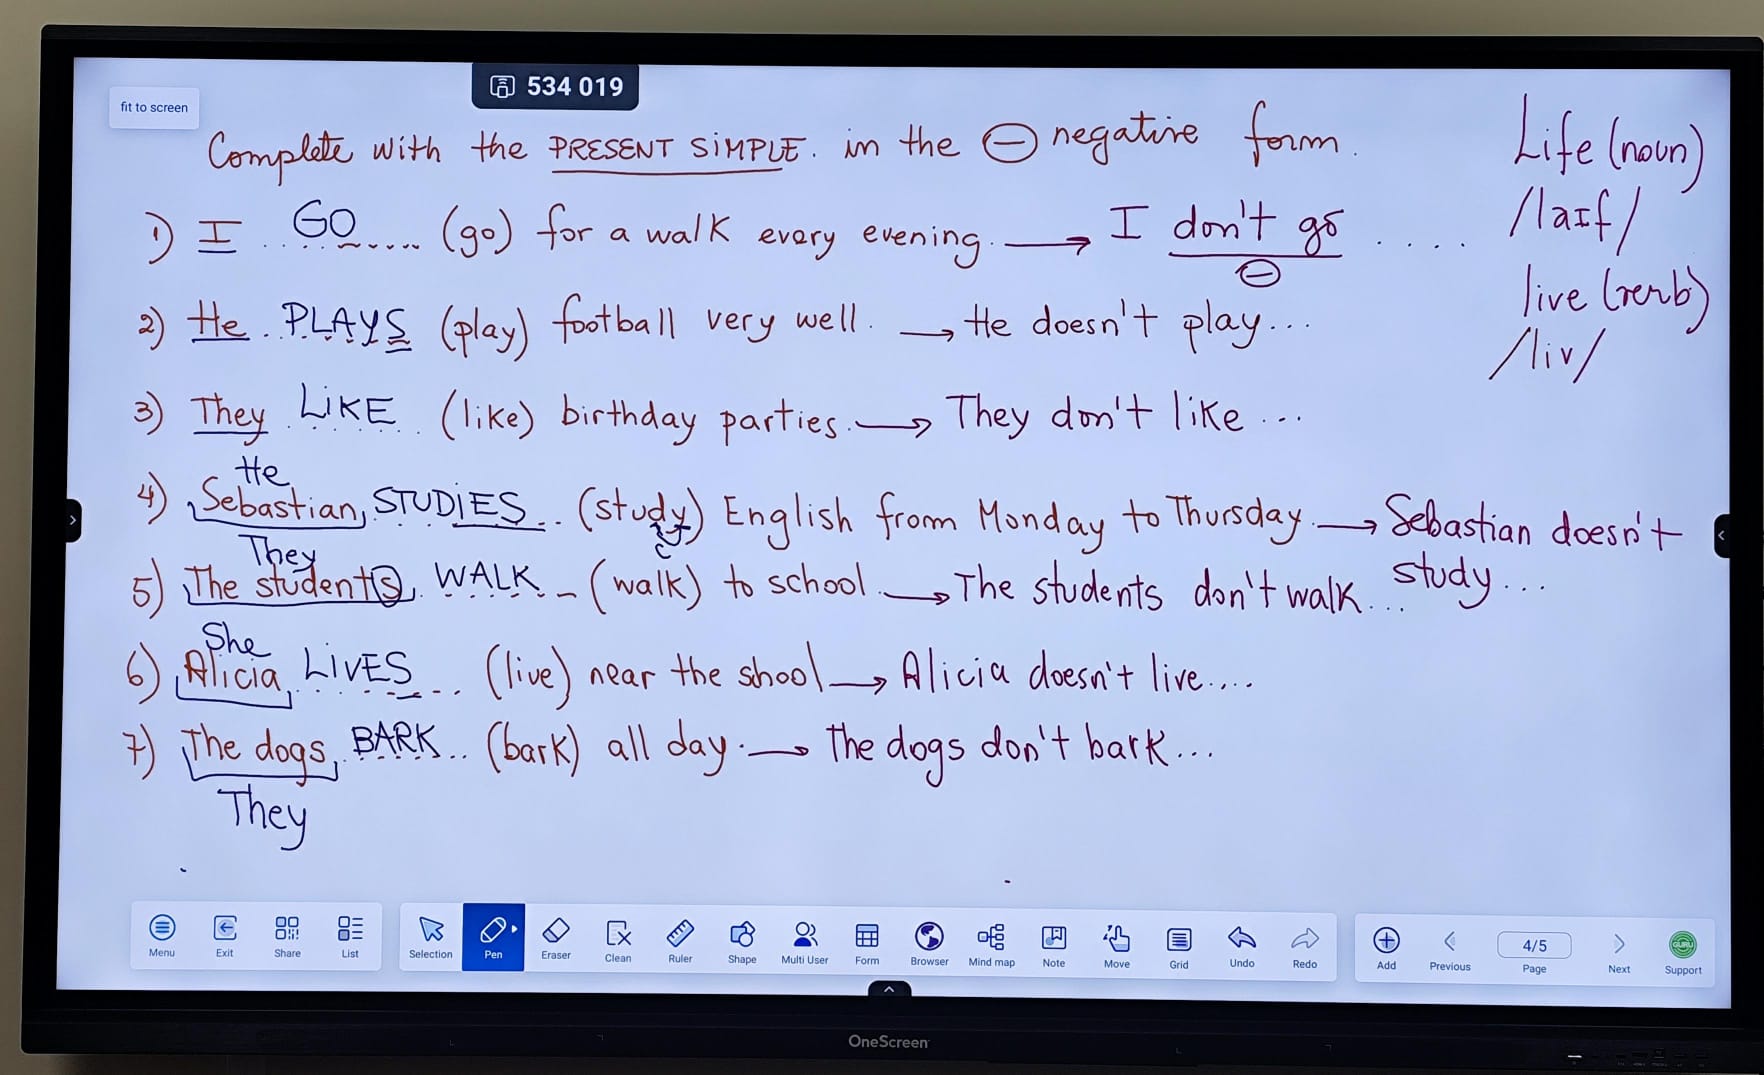 534 019
fit to screen
Complete with the PRESENT SiMPLE. in the ⊖ negative form.
1) I ..GO..... (go) for a walk every evening. → I don't go ....
⊖
2) He . PLAYS (play) football very well. → He doesn't play...
3) They . LiKE .. (like) birthday parties. → They don't like ...
He
4) Sebastian, STUDiES... (study) English from Monday to Thursday. → Sebastian doesn't study...
They
5) The students, WALK.. (walk) to school. → The students don't walk...
She
6) Alicia, LiVES ... (live) near the shool → Alicia doesn't live....
7) The dogs, BARK.. (bark) all day. → The dogs don't bark...
They
Life (noun)
/laɪf/
live (verb)
/liv/
Menu Exit Share List Selection Pen Eraser Clean Ruler Shape Multi User Form Browser Mind map Note Move Grid Undo Redo Add Previous 4/5 Page Next GURU Support
OneScreen